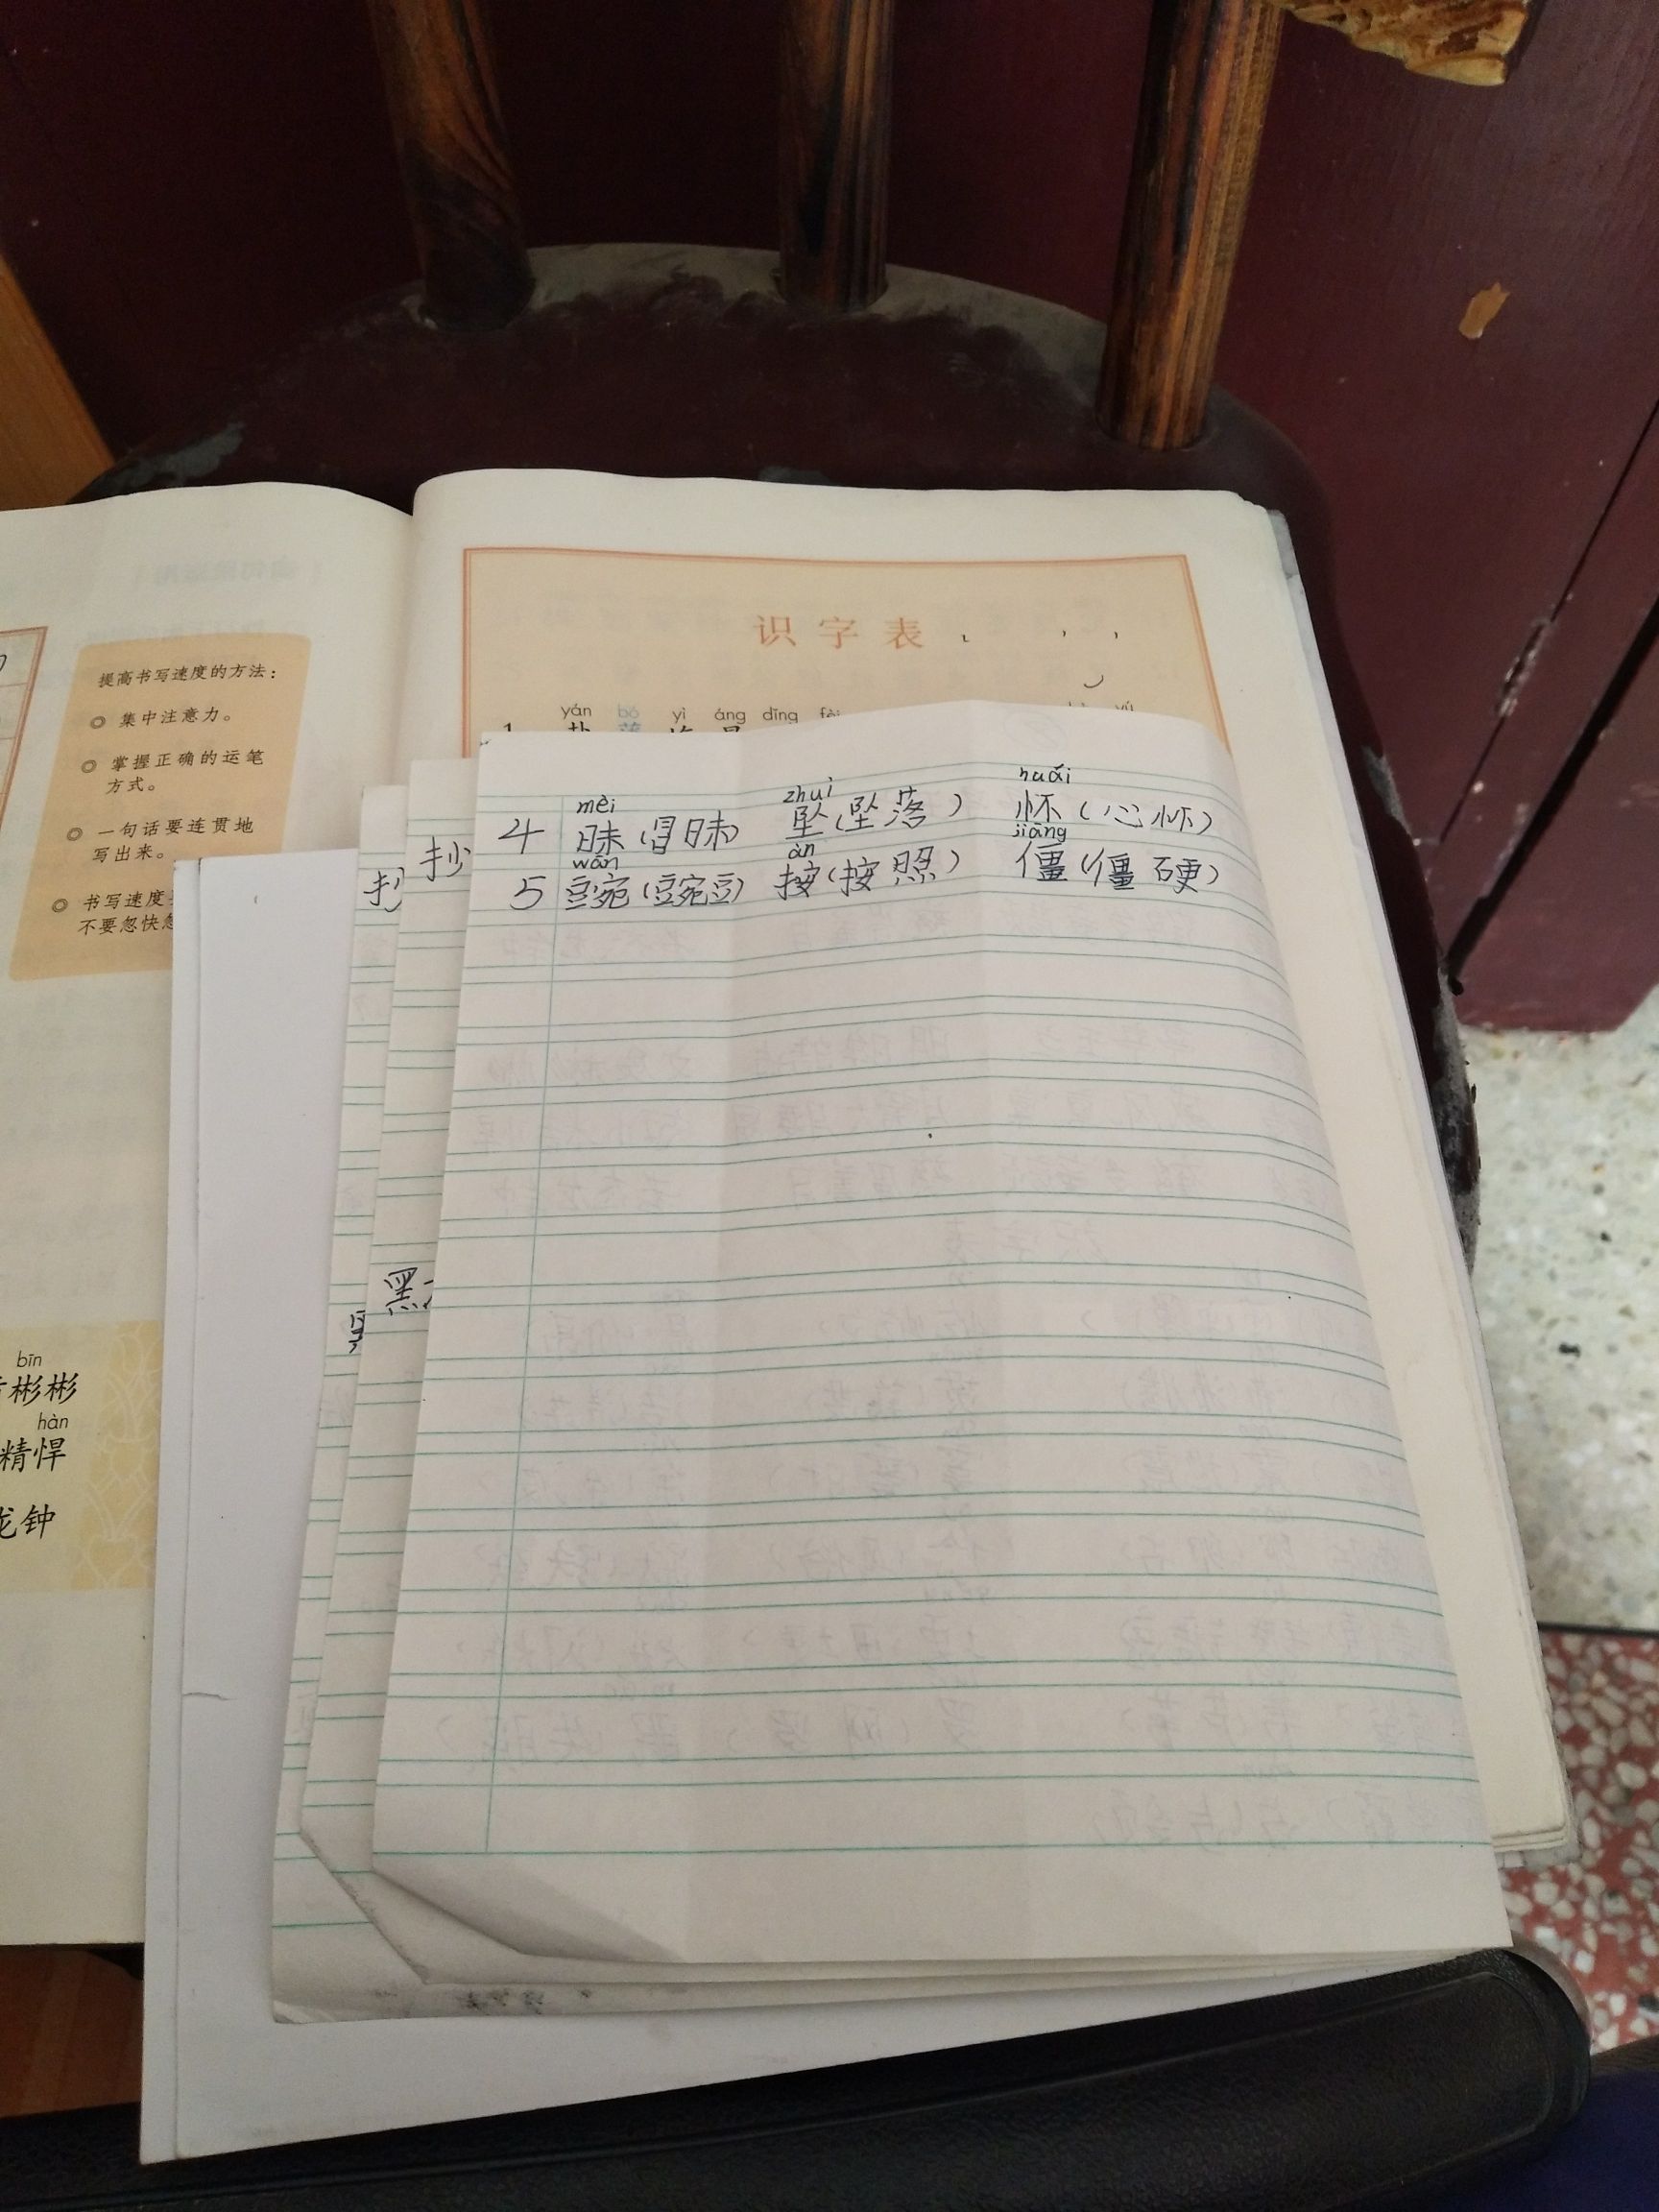 提高书写速度的方法：
◎ 集中注意力。
◎ 掌握正确的运笔
方式。
◎ 一句话要连贯地
写出来。
◎ 书写速度
不要忽快忽
bīn
彬彬
hàn
精悍
龙钟
识字表
yán bó yì áng dīng fèi
1
yǔ
抄
抄
黑
mèi zhuì huái
4 昧（冒昧） 坠（坠落） 怀（心怀）
wān àn jiāng
5 豌（豌豆） 按（按照） 僵（僵硬）